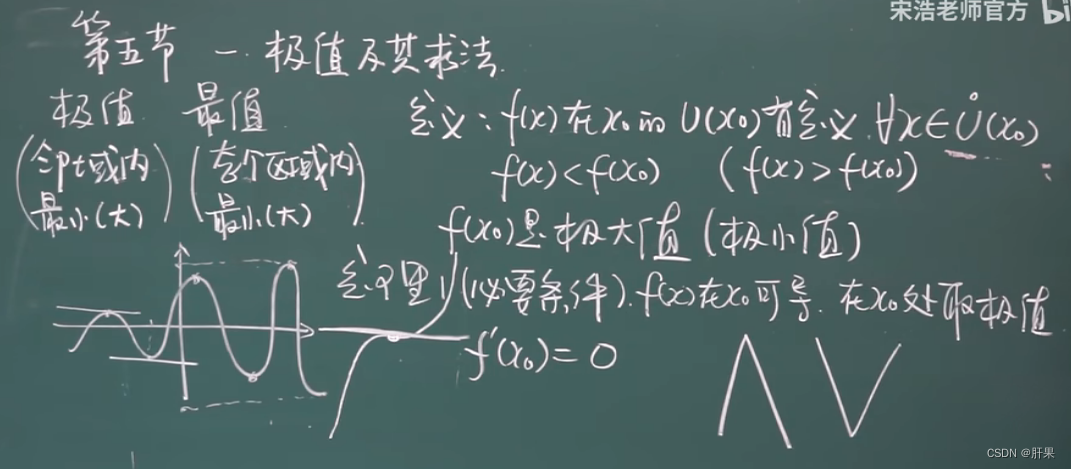 宋浩老师官方 bi
第五节 一. 极值及其求法.
极值 最值
(局部域内最小(大)) (在个区域内最小(大)).
定义:f(x)在x₀的U(x₀)有定义.∀x∈Ů(x₀)
f(x)<f(x₀) (f(x)>f(x₀))
f(x₀)是极大值(极小值)
定理1(必要条件).f(x)在x₀可导.在x₀处取极值
f'(x₀)=0
CSDN @肝果